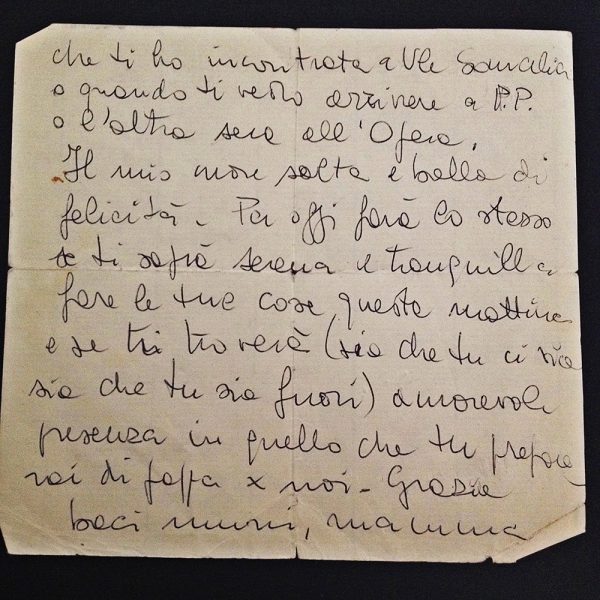 che ti ho incontrata a Vle Somalia
o quando ti vedo arrivare a P.P.
o l'altra sera all'Opera.
Il mio cuore salta e balla di
felicità. Per oggi farà lo stesso
se ti saprà serena e tranquilla
fare le tue cose questa mattina
e se ti troverà (sia che tu ci sia
sia che tu sia fuori) amorevole
presenza in quello che tu prepare
rai di pappa x noi. Grazie
baci mumi, mamma